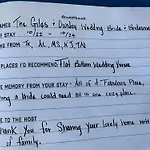 NAMES The Giles & Dunlav Wedding Bride & Bridesmaids
STAY 10/22 - 10/24
ING FROM TX, AL, MS, KS, TN
PLACES I'D RECOMMEND Flat Bottom Wedding Venue
E MEMORY FROM YOUR STAY All of it! Fabulous Place,
ing a bride could need all in one cozy place.
E TO THE HOST
hank you for sharing your lovely home with
of family.